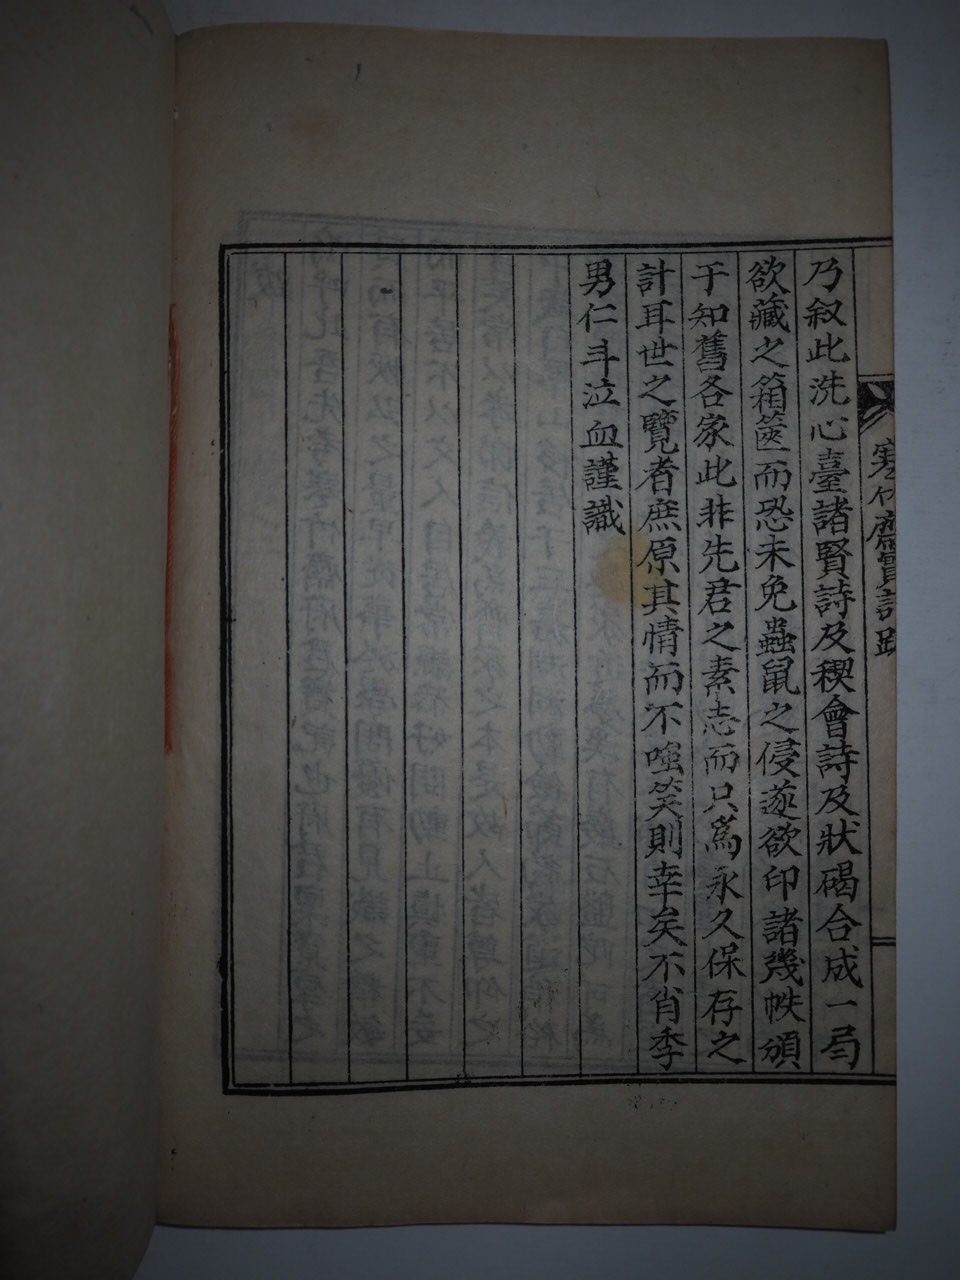 寒竹齋實記跋
乃叙此洗心臺諸賢詩及稧會詩及狀碣合成一局
欲藏之箱篋而恐未免蟲鼠之侵遂欲印諸幾帙頒
于知舊各家此非先君之素志而只爲永久保存之
計耳世之覽者庶原其情而不嗤笑則幸矣不肖季
男仁斗泣血謹識